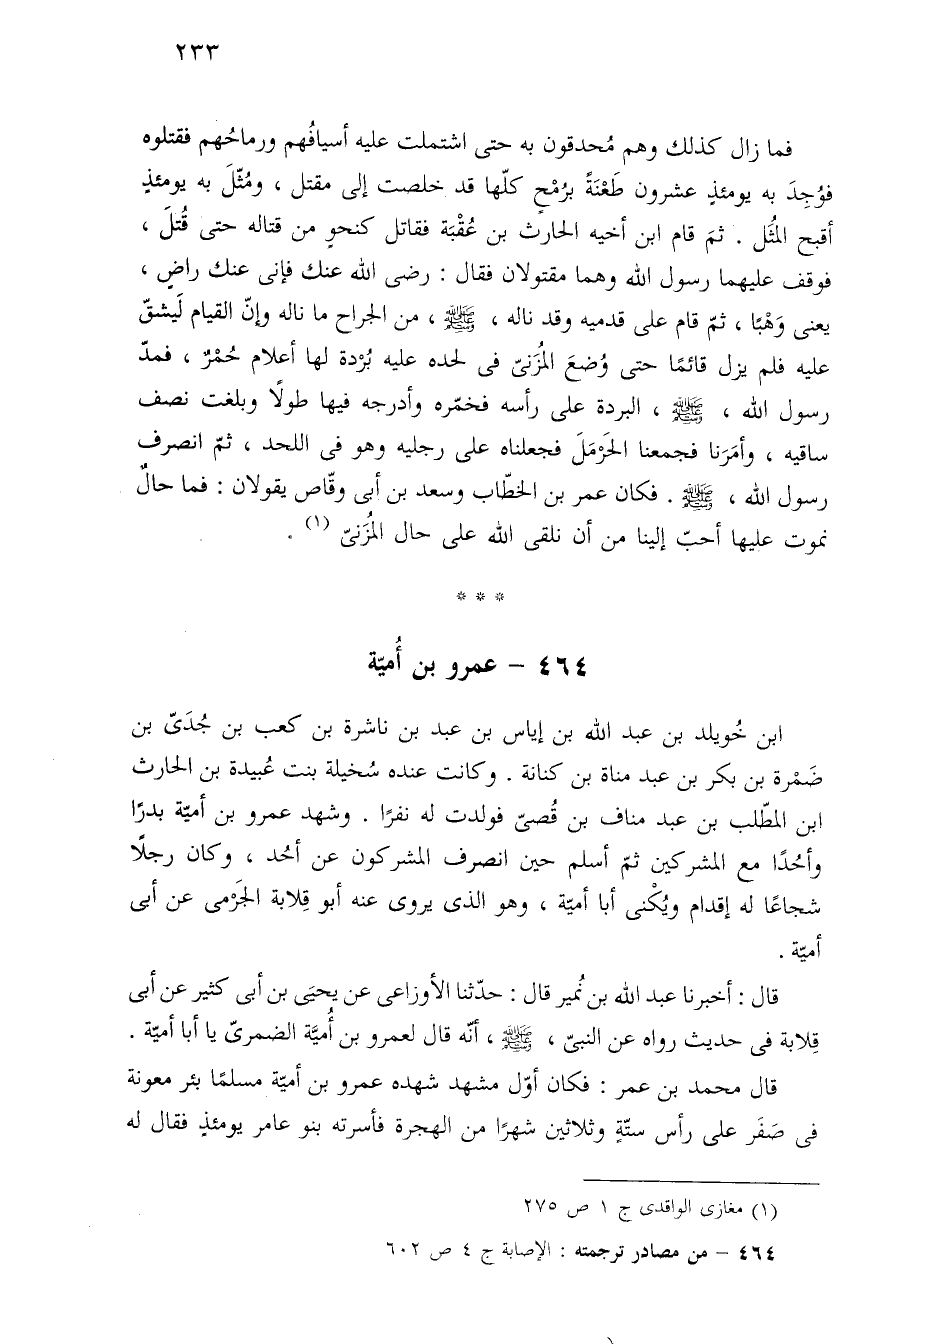 ٢٣٣
فما زال كذلك وهم مُحدقون به حتى اشتملت عليه أسيافُهم ورماحُهم فقتلوه
فوُجِدَ به يومئذٍ عشرون طَعْنَةً برُمْحٍ كلّها قد خلصت إلى مقتل ، ومُثّلَ به يومئذٍ
أقبح المُثَل . ثمّ قام ابن أخيه الحارث بن عُقْبَة فقاتل كنحوٍ من قتاله حتى قُتلَ ،
فوقف عليهما رسول الله وهما مقتولان فقال : رضى الله عنك فإنى عنك راضٍ ،
يعنى وَهْبًا ، ثمّ قام على قدميه وقد ناله ، ﷺ ، من الجراح ما ناله وإنّ القيام لَيشقّ
عليه فلم يزل قائمًا حتى وُضعَ المُزَنىّ فى لحده عليه بُرْدة لها أعلام حُمْرٌ ، فمدّ
رسول الله ، ﷺ ، البردة على رأسه فخمّره وأدرجه فيها طولًا وبلغت نصف
ساقيه ، وأمَرَنا فجمعنا الحَرْمَلَ فجعلناه على رجليه وهو فى اللحد ، ثمّ انصرف
رسول الله ، ﷺ . فكان عمر بن الخطّاب وسعد بن أبى وقّاص يقولان : فما حالٌ
نموت عليها أحبّ إلينا من أن نلقى الله على حال المُزَنىّ (١) .
* * *
٤٦٤ – عمرو بن أُميّة
ابن خُويلد بن عبد الله بن إياس بن عبد بن ناشرة بن كعب بن جُدَىّ بن
ضَمْرة بن بكر بن عبد مناة بن كنانة . وكانت عنده سُخيلة بنت عُبيدة بن الحارث
ابن المطّلب بن عبد مناف بن قُصىّ فولدت له نفرًا . وشهد عمرو بن أميّة بدرًا
وأحُدًا مع المشركين ثمّ أسلم حين انصرف المشركون عن أحُد ، وكان رجلًا
شجاعًا له إقدام ويُكْنى أبا أميّة ، وهو الذى يروى عنه أبو قِلابة الجَرْمى عن أبى
أميّة .
قال : أخبرنا عبد الله بن نُمير قال : حدّثنا الأوزاعى عن يحيَى بن أبى كثير عن أبى
قِلابة فى حديث رواه عن النبىّ ، ﷺ ، أنّه قال لعمرو بن أُميَّة الضمرىّ يا أبا أميّة .
قال محمد بن عمر : فكان أوّل مشهد شهده عمرو بن أميّة مسلمًا بئر معونة
فى صَفَر على رأس ستّةٍ وثلاثين شهرًا من الهجرة فأسرته بنو عامر يومئذٍ فقال له
(١) مغازى الواقدى ج ١ ص ٢٧٥
٤٦٤ – من مصادر ترجمته : الإصابة ج ٤ ص ٦٠٢